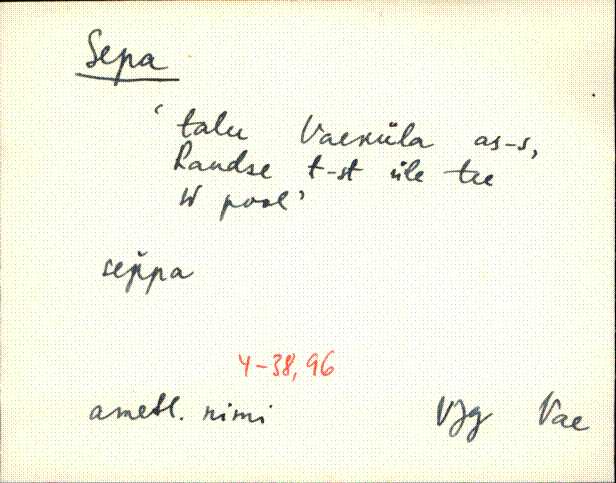 Sepa
‘talu Vaeküla as-s,
Raudse t-st üle tee
W pool’
sep̆pa
4-38, 96
ametl. nimi VJg Vae